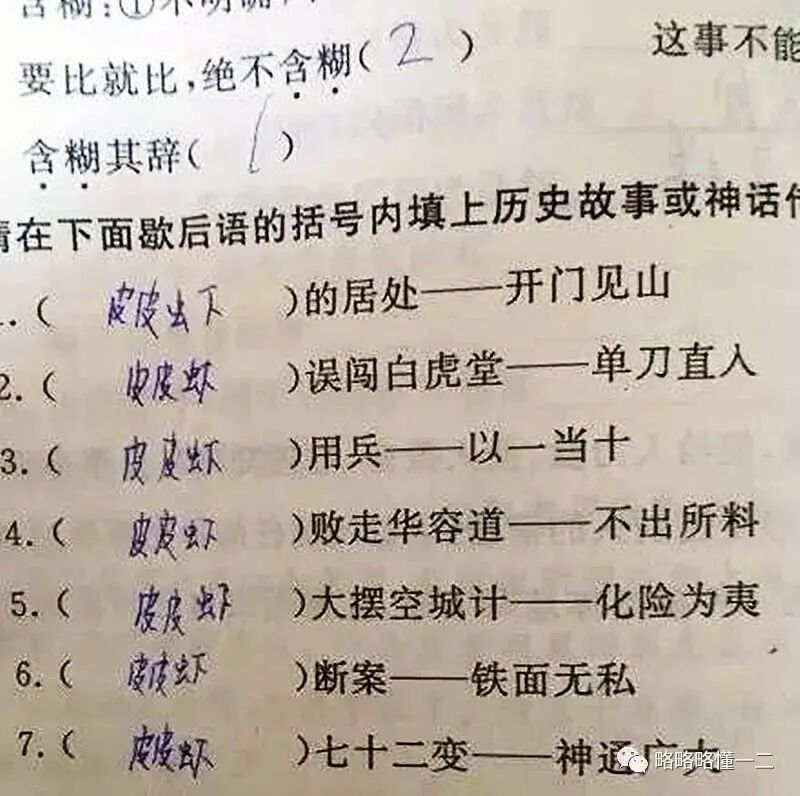 含糊:①不明确
要比就比,绝不含糊(2) 这事不能
含糊其辞(1)
请在下面歇后语的括号内填上历史故事或神话传
1.(皮皮虾)的居处——开门见山
2.(皮皮虾)误闯白虎堂——单刀直入
3.(皮皮虾)用兵——以一当十
4.(皮皮虾)败走华容道——不出所料
5.(皮皮虾)大摆空城计——化险为夷
6.(皮皮虾)断案——铁面无私
7.(皮皮虾)七十二变——神通广大
略略略懂一二